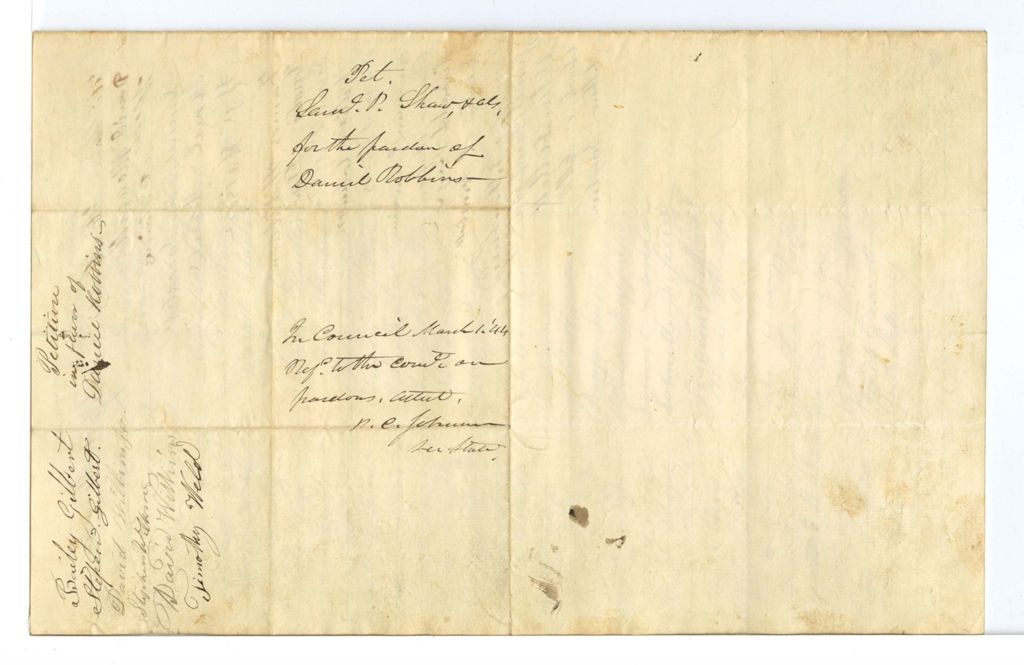 Pet.
Saml. P. Shaw, & als,
for the pardon of
Daniel Robbins—
In Council March 1. '44
Refd. to the Comte. on
pardons. Attest,
P. C. Johnson
Sec. State.
Petition
in favor of
Daniel Robbins—
Bailey Gilbert
Stephen Gilbert.
David
Stephen
David
Timothy Weld